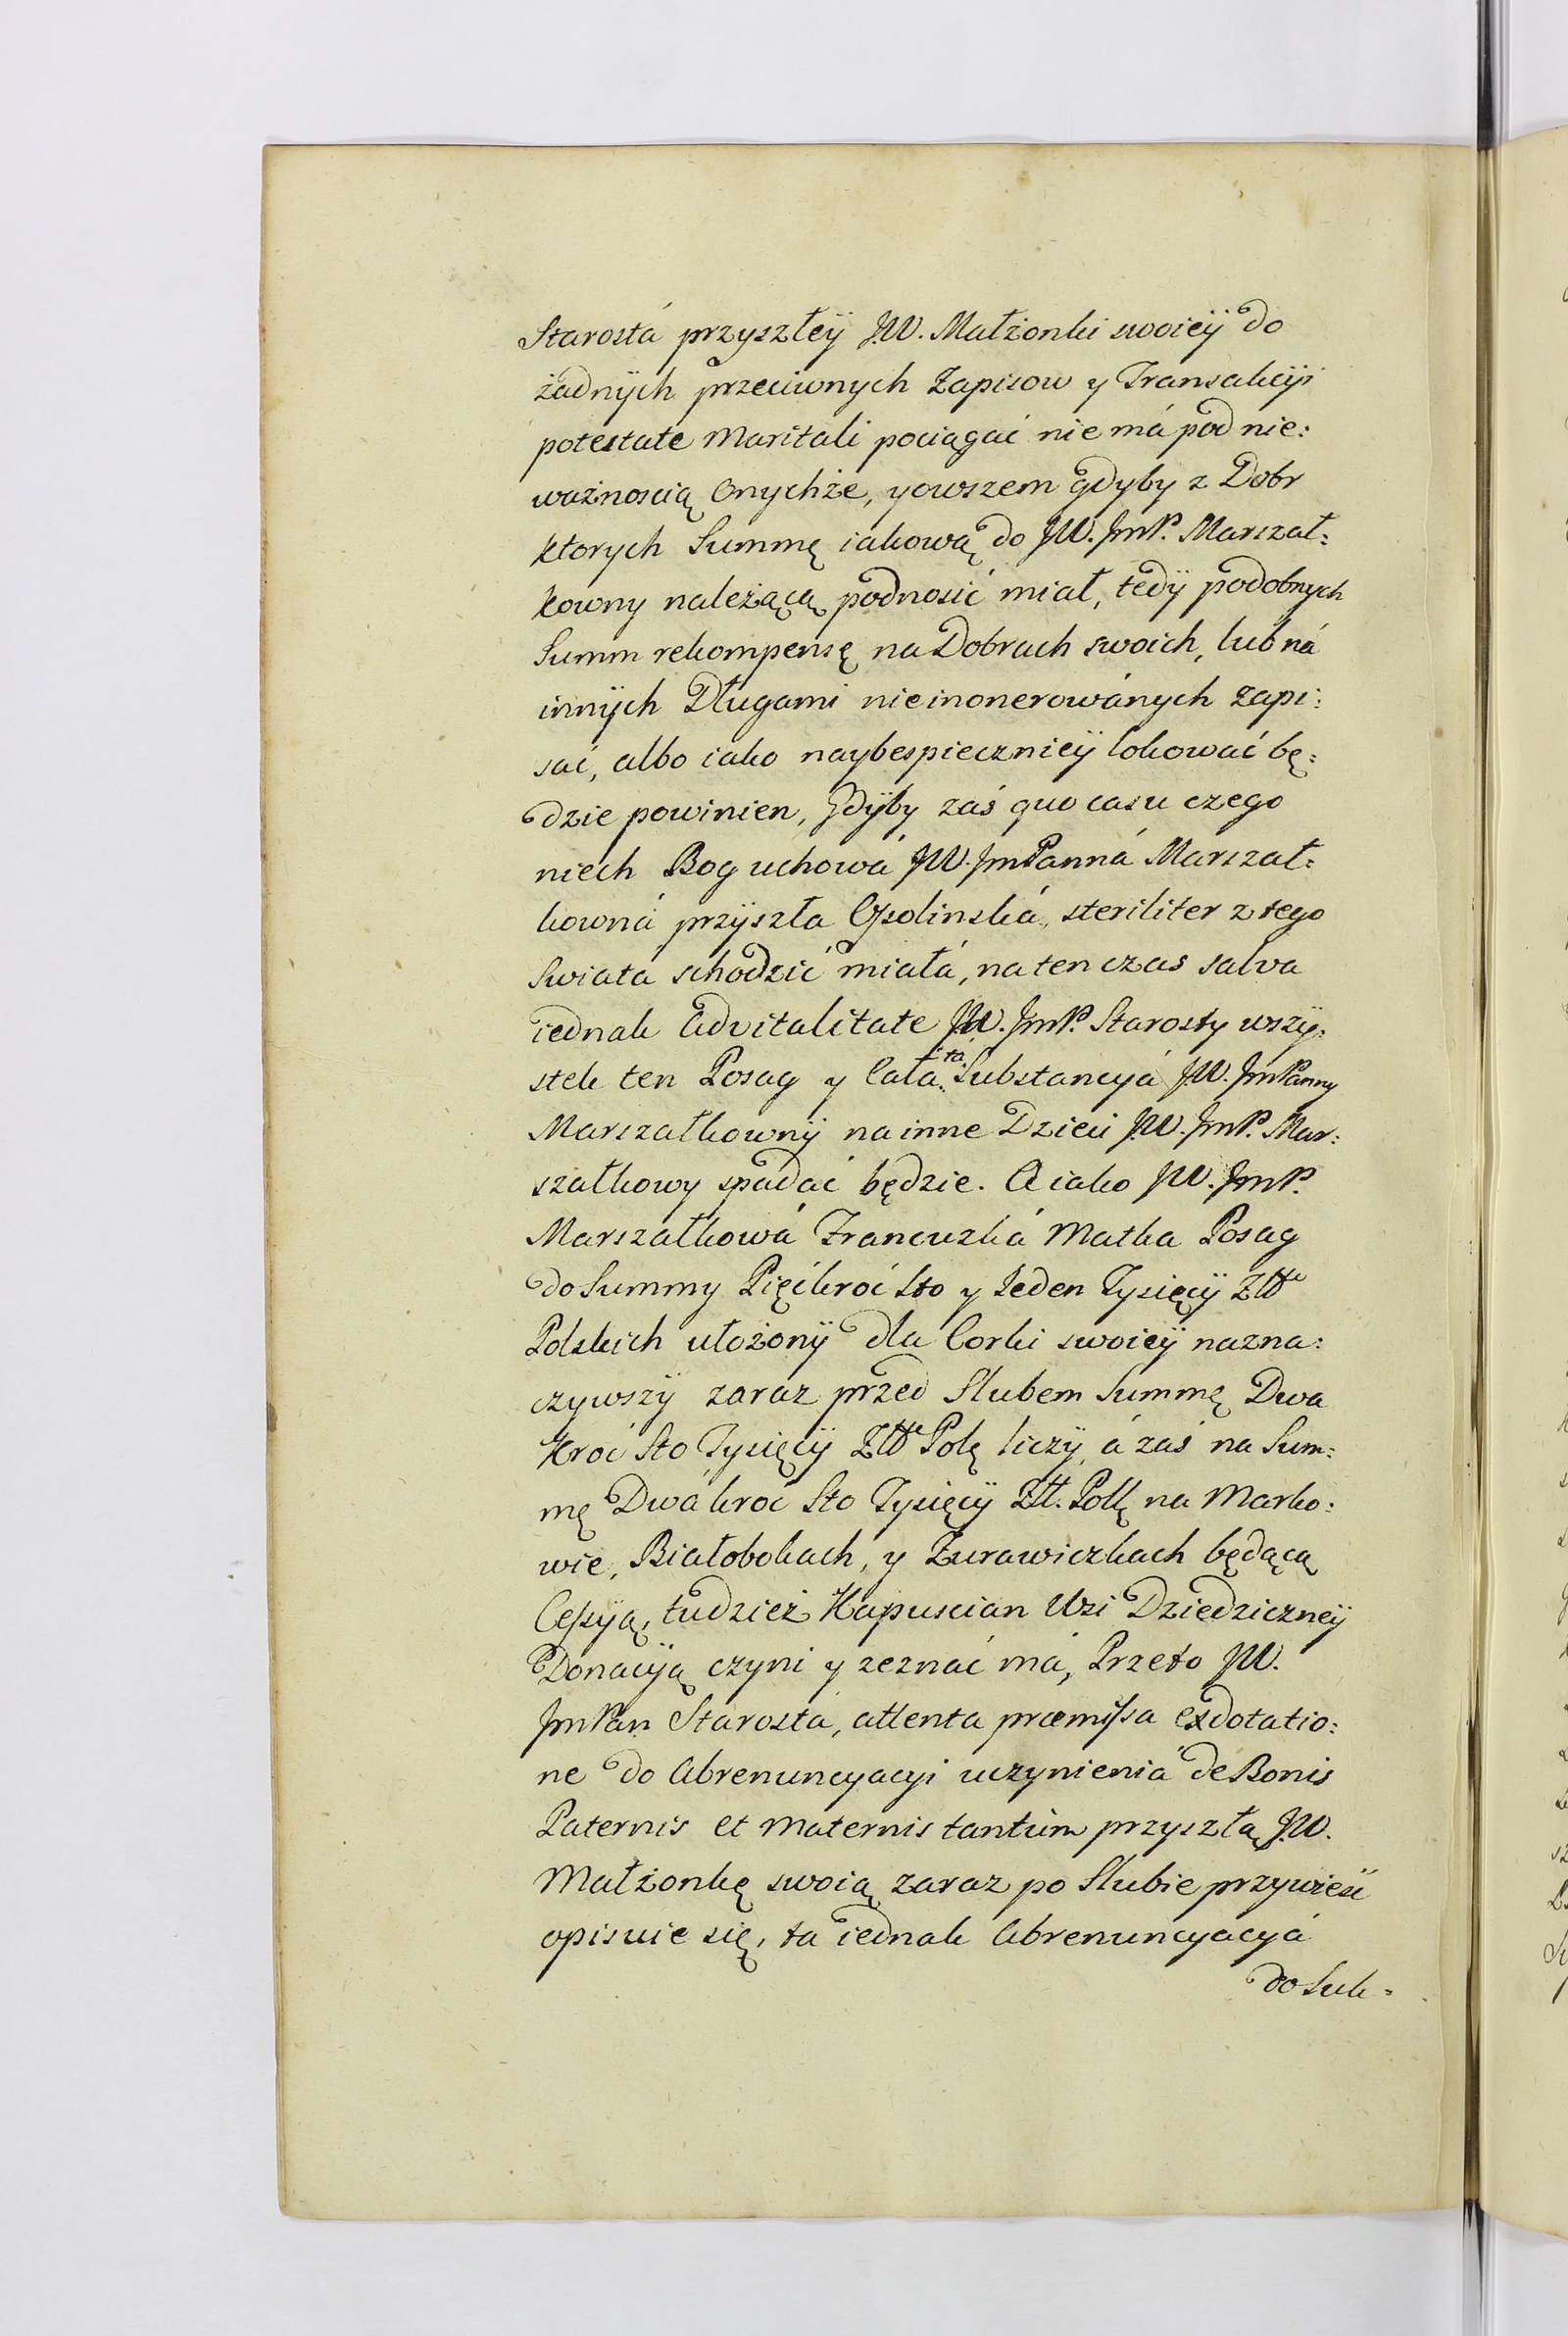 Starostá przyszłeÿ JW. Małżonki swoieÿ do
żadnÿch przeciwnych Zapisow y Transakcÿi
potestate Maritali pociągać nie má pod nie:
ważnoscią Onychże, yowszem gdyby z Dobr
ktorych Summę iakową do JW. JmP. Marszał:
kowny należącą podnosić miał, tedÿ podobnych
Summ rekompensę na Dobrach swoich, lub ná
innÿch Długami nieinonerowánych zapi:
sać, albo iako naybespiecznieÿ lokować bę:
dzie powinien, Gdÿby zaś quo casu czego
niech Bog uchowá JW. JmPanná Marszał:
kowná przÿszła Ossolinská, steriliter z tego
Swiata schodzić miałá, na ten czas salva
iednak Advitalitate JW. JmP. Starosty wszÿ:
stek ten Posag y Cała ta Substancyá JW. JmPanny
Marszałkownÿ na inne Dzieci JW. JmP. Mar:
szałkowy spadać będzie. A iako JW. JmP.
Marszałkowá Francuzká Matka Posag
do Summy Pięćkroć Sto y Jeden Tysięcÿ Złł
Polskich ułożonÿ dla Corki swoieÿ nazna:
czywszÿ zaraz przed Slubem Summę Dwa
kroć Sto Tysięcÿ Złł Polę liczÿ, á zaś na Sum:
mę Dwákroć Sto Tysięcÿ Złł. Pollę na Marko:
wie, Białobokach, y Zurawiczkach będącą
Cessyą, tudzież Kapuscian Wsi Dziedziczneÿ
Donacÿą czyni y zeznać má, Przeto JW.
JmPan Starostá, attenta præmissa exdotatio:
ne do Abrenuncyacyi uczynieniá de Bonis
Paternis et Maternis tantùm przyszłą JW.
Małżonkę swoią zaraz po Slubie przywieść
opisuie się, ta iednak Abrenuncyacyá
do Suk=